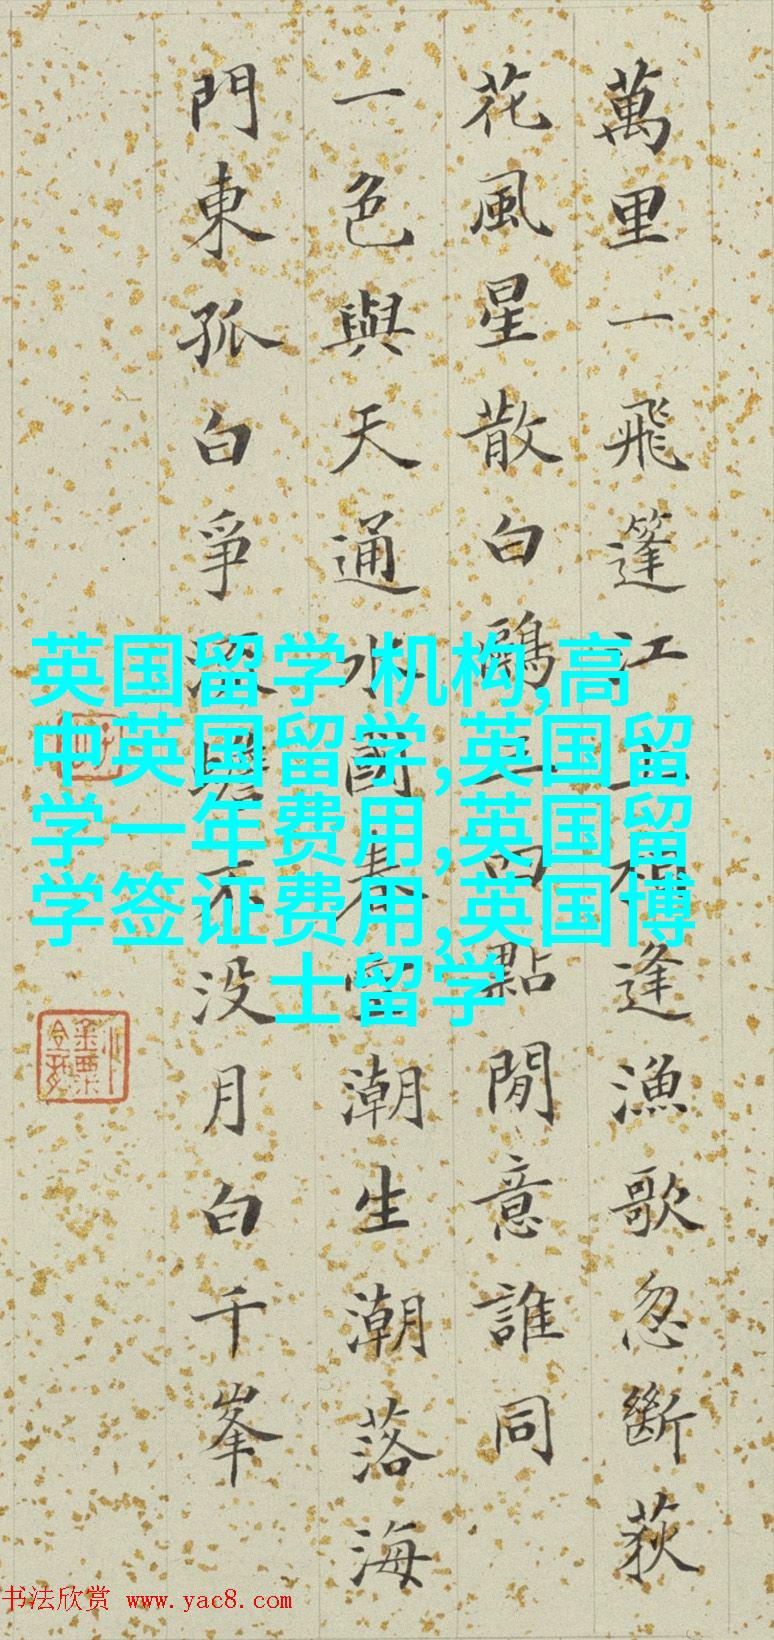 萬里一飛篷江上相逢漁歌忽斷荻
花風星散白鷗三四點閒意誰同
一色與天通水國春空潮生潮落海
門東孤白爭流蟾不没月白千峯
英国留学 机构,高
中英国留学,英国留
学一年费用,英国留
学签证费用,英国博
士留学
书法欣赏 www.yac8.com